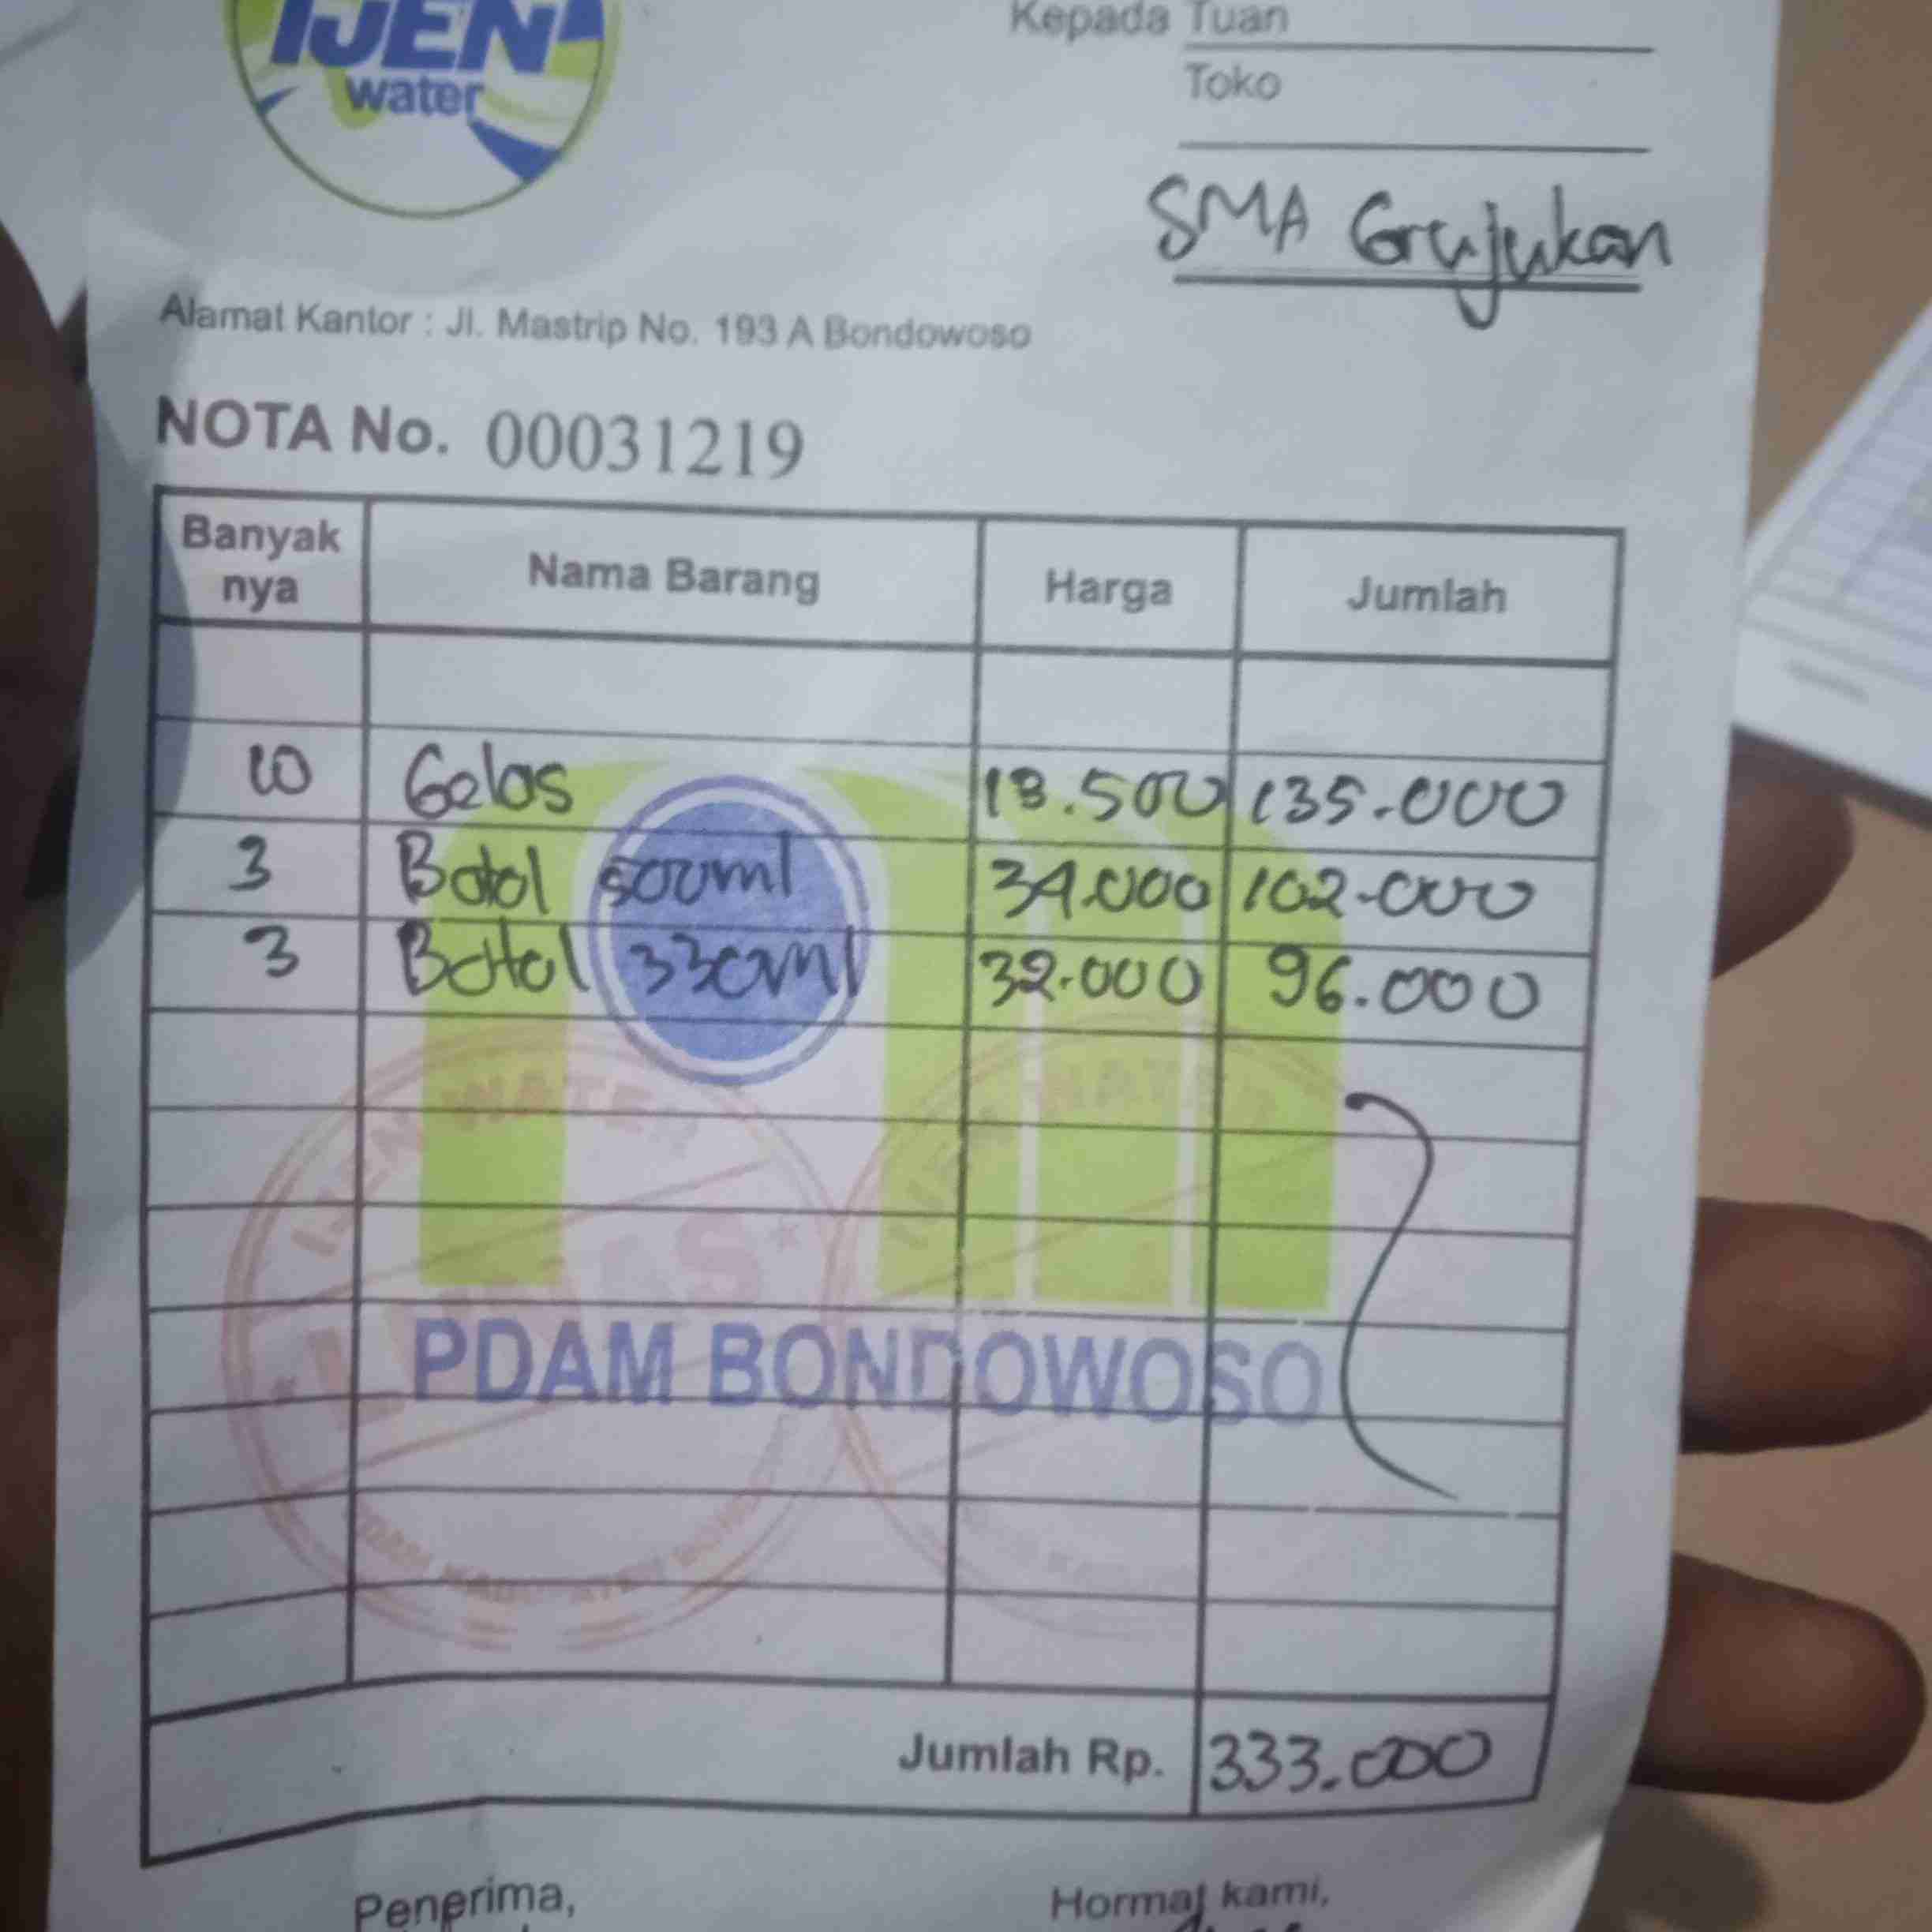 IJEN
water
Kepada Tuan
Toko
SMA Grujukan
Alamat Kantor : Jl. Mastrip No. 193 A Bondowoso
NOTA No. 00031219
Banyak nya Nama Barang Harga Jumlah
10 Gelas 13.500 135.000
3 Botol 500ml 34.000 102.000
3 Botol 330ml 32.000 96.000
IJEN WATER
LUNAS
PDAM BONDOWOSO
Jumlah Rp. 333.000
Penerima,
Hormat kami,